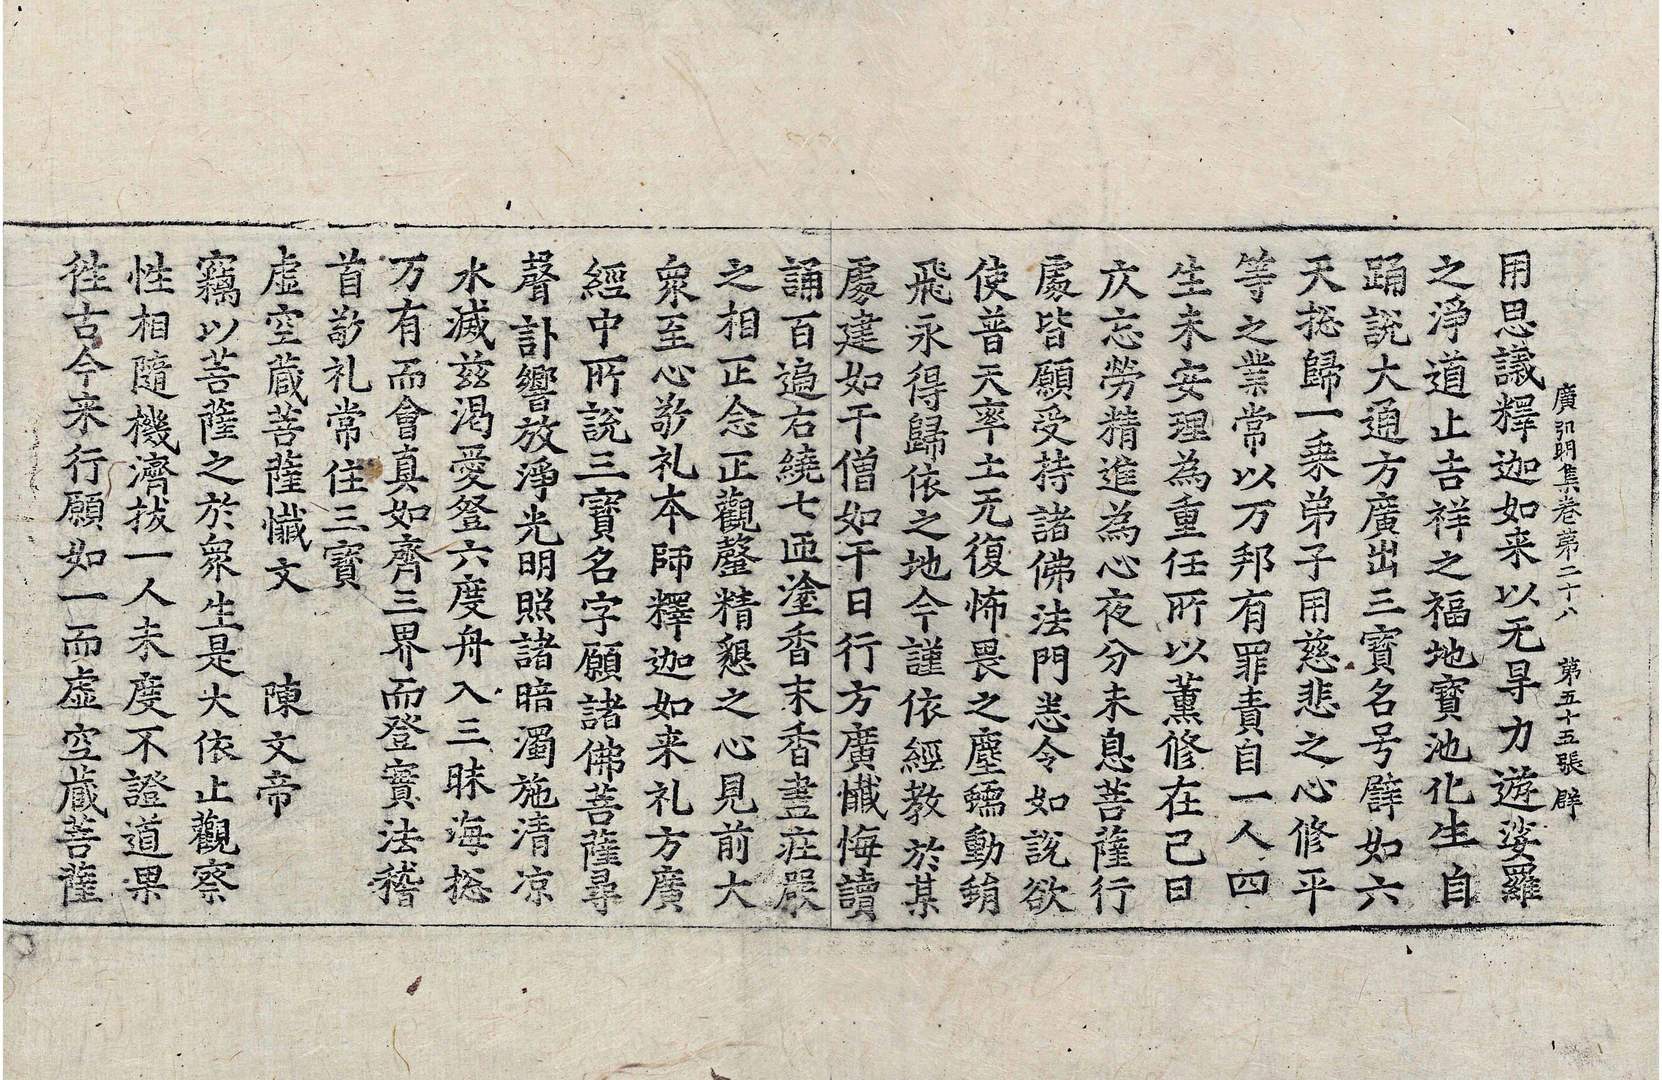 廣弘明集卷第二十八　第五十五張　辟
用思議釋迦如来以无㝵力遊娑羅
之淨道止吉祥之福地寳池化生自
踊說大通方廣出三寳名号譬如六
天捴歸一乗弟子用慈悲之心修平
等之業常以万邦有罪責自一人四
生未安理為重任所以薫修在己日
夜忘勞精進為心夜分未息菩薩行
處皆願受持諸佛法門悉令如說欲
使普天率土无復怖畏之塵蠕動蜎
飛永得歸依之地今謹依經教於某
處建如干僧如干日行方廣懴悔讀
誦百遍右繞七迊塗香末香盡莊嚴
之相正念正觀罄精懇之心見前大
衆至心敬礼本師釋迦如来礼方廣
經中所說三寳名字願諸佛菩薩尋
聲訃響放淨光明照諸暗濁施清凉
水滅兹渇愛登六度舟入三昧海捴
万有而會真如齊三界而登實法稽
首敬礼常住三寳
虚空蔵菩薩懴文　陳文帝
竊以菩薩之於衆生是大依止觀察
性相隨機濟拔一人未度不證道果
徃古今来行願如一而虚空蔵菩薩